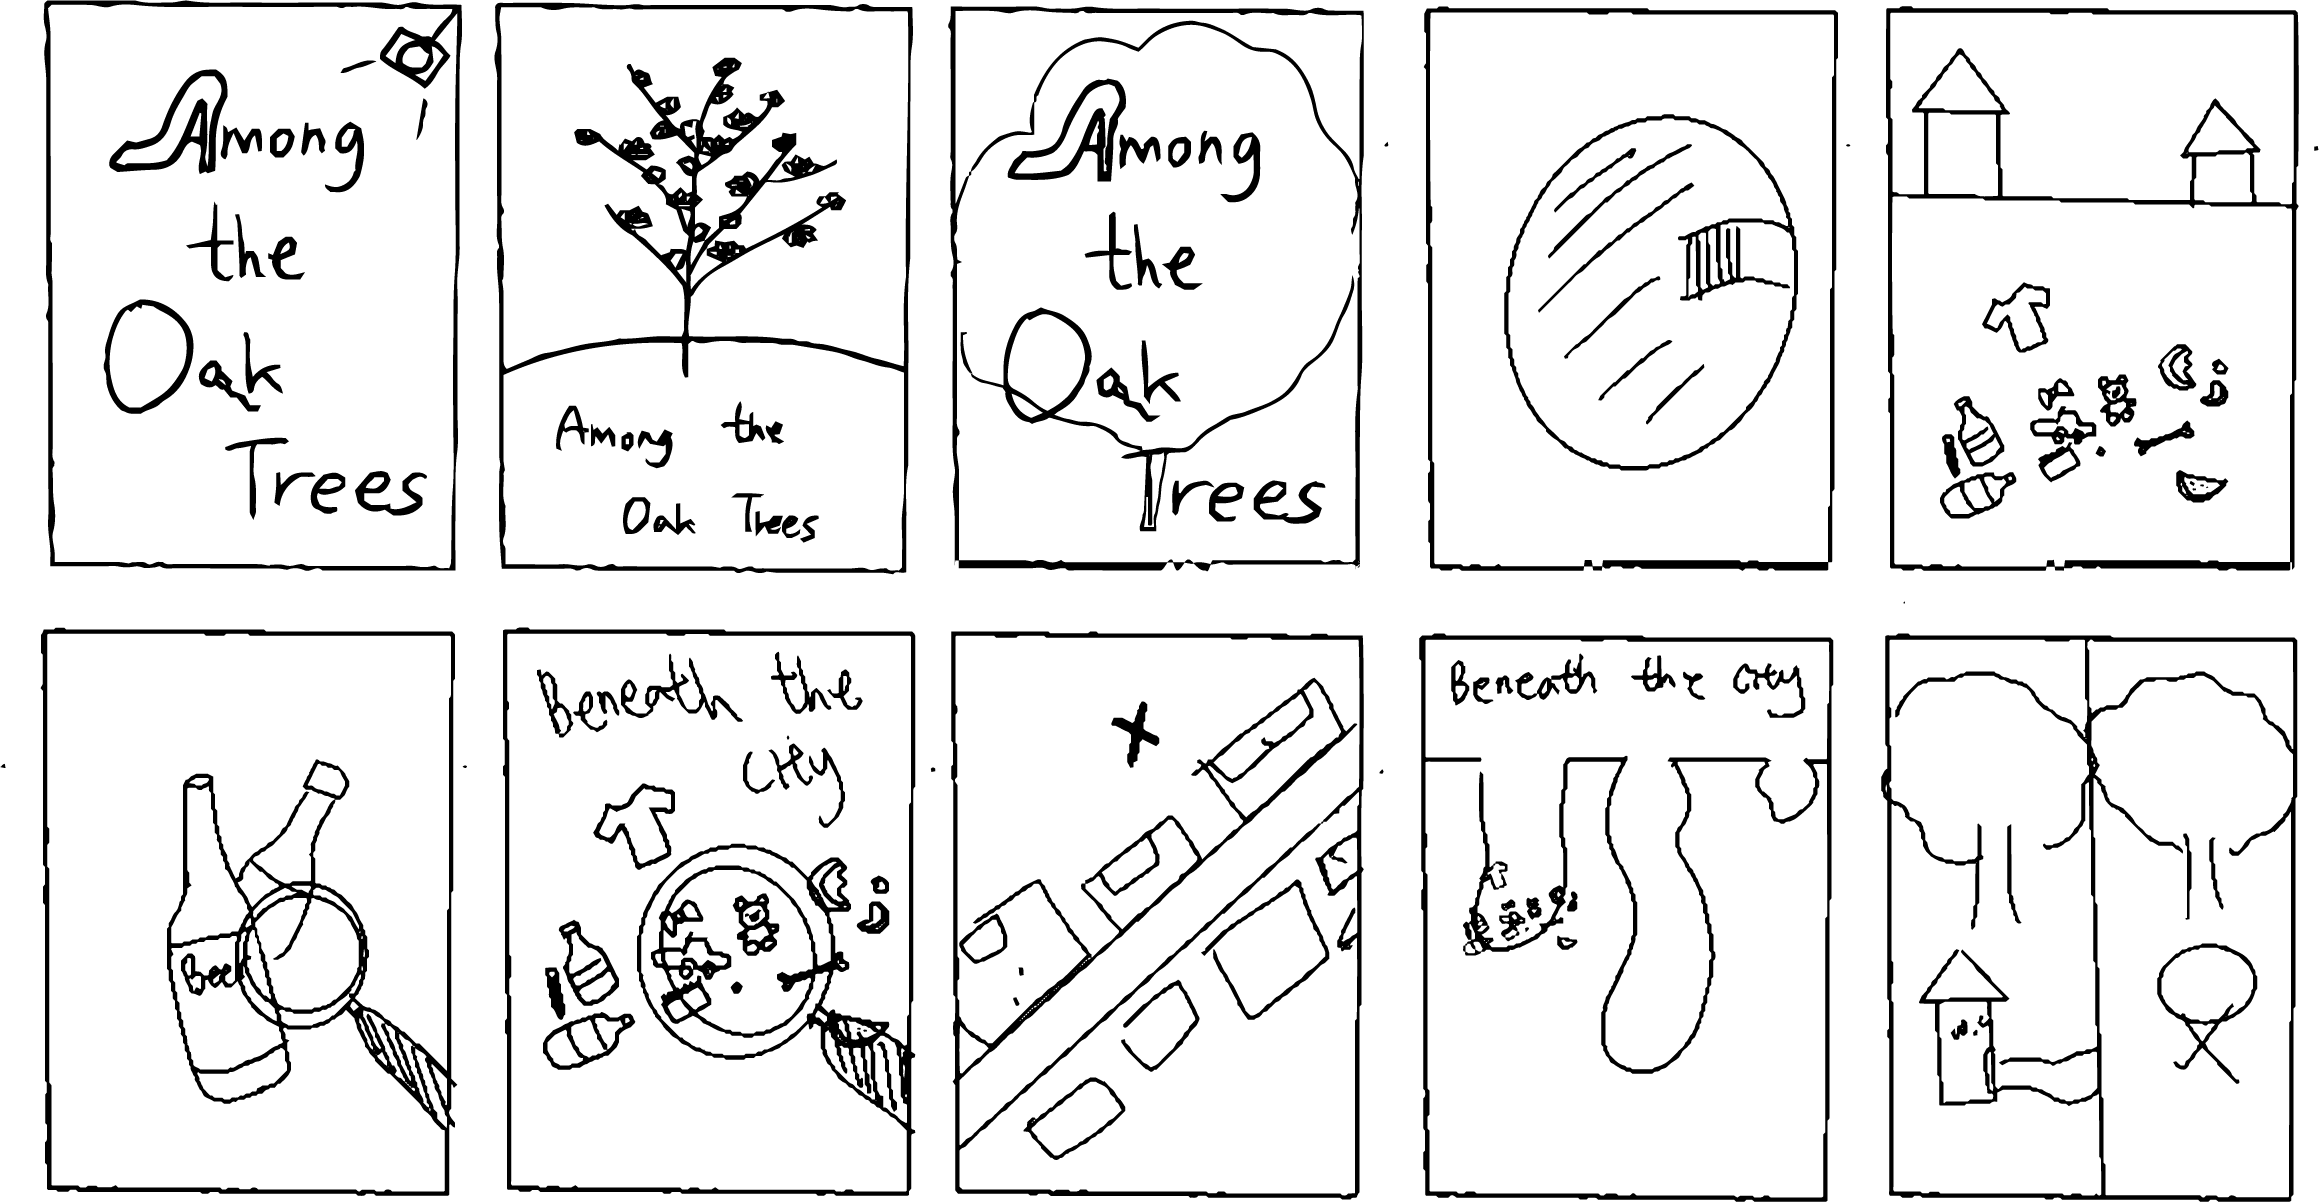 Among
the
Oak
Trees
Among the
Oak Trees
Among
the
Oak
Trees
Beer
Beneath the
City
Beneath the City